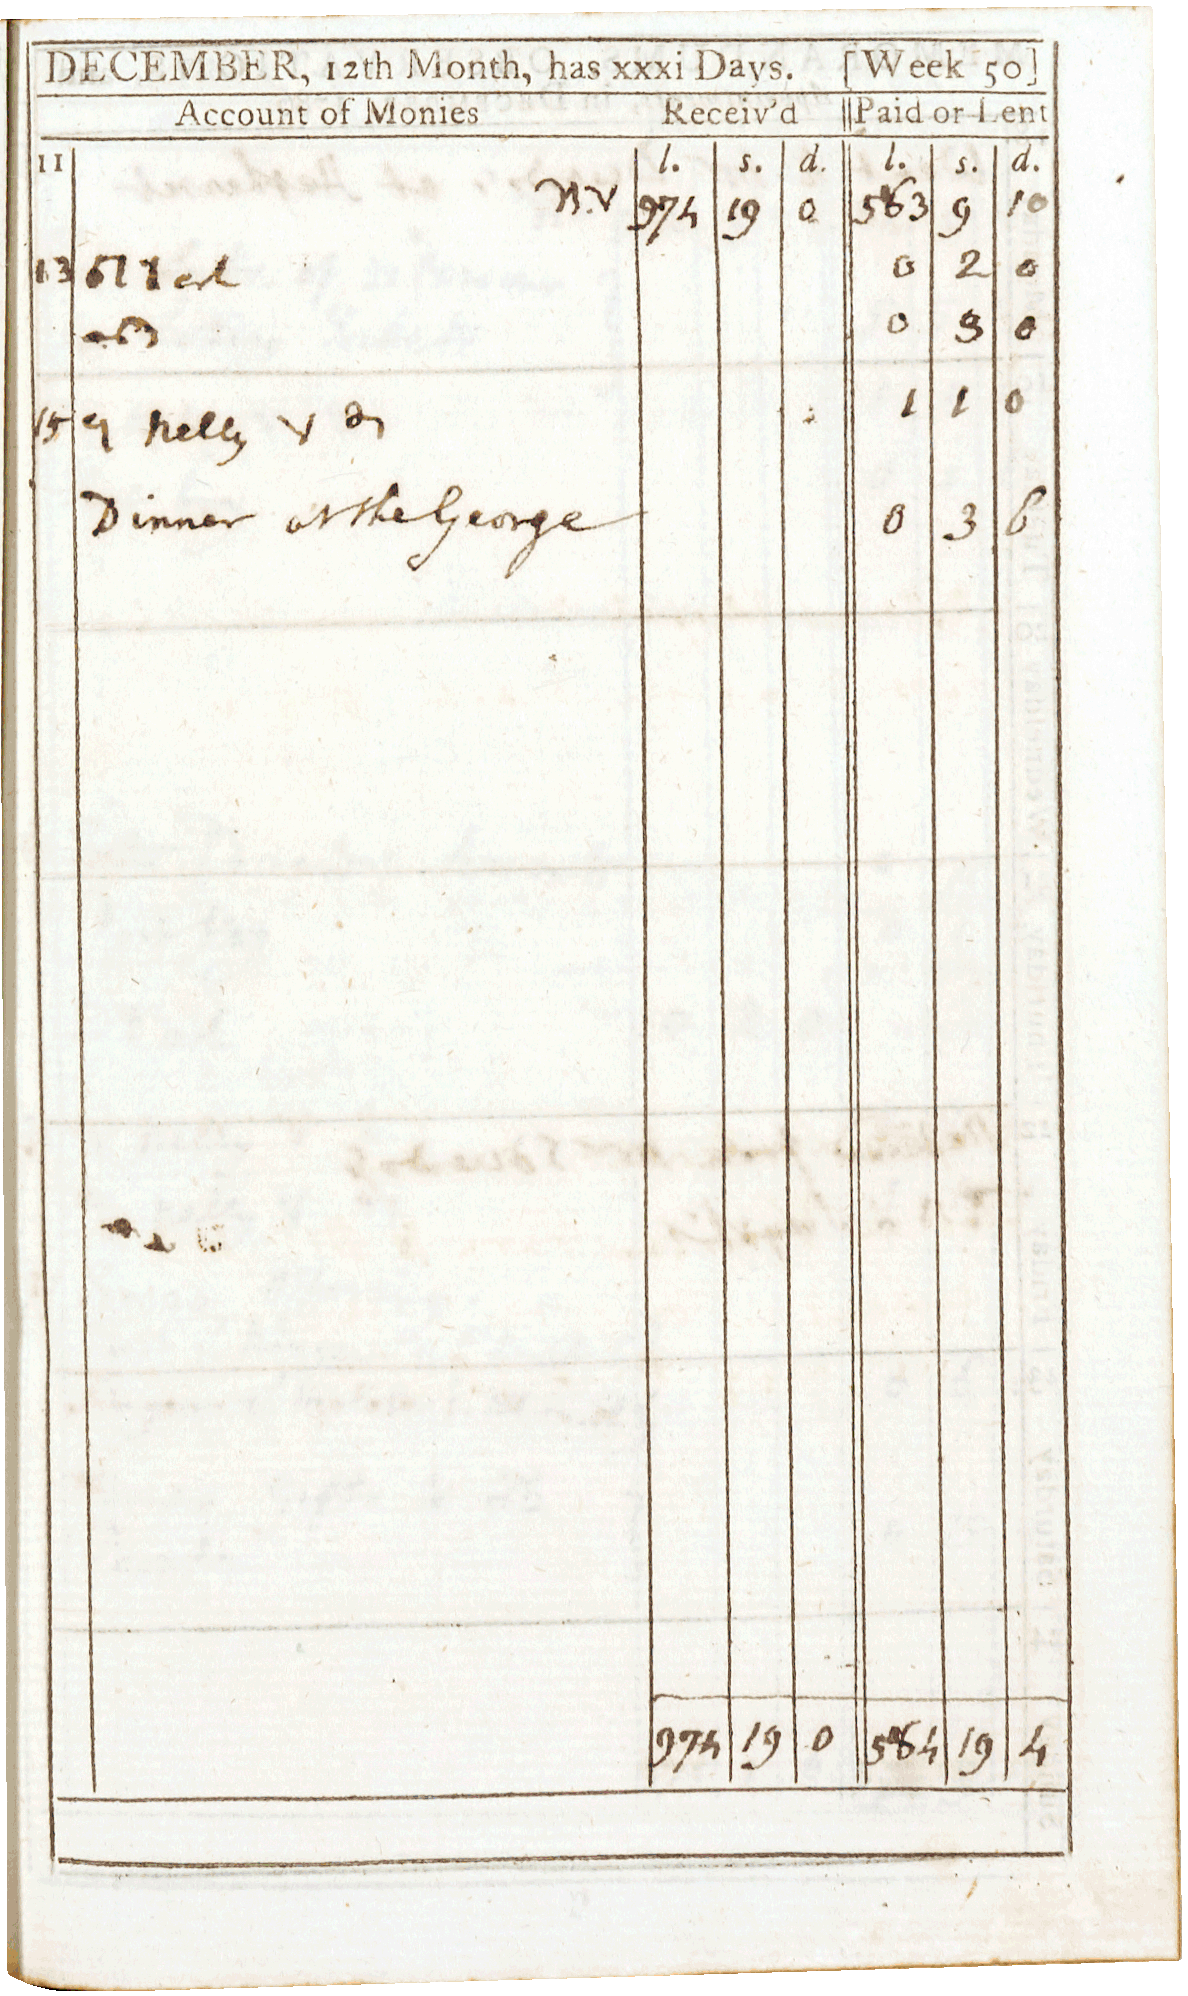 DECEMBER, 12th Month, has xxxi Days. [Week 50]
Account of Monies Receiv'd Paid or Lent
11 l. s. d. l. s. d.
974 19 0 563 9 10
13 0 2 0
0 3 0
15 Nelly 1 1 0
Dinner at the George 0 3 6
974 19 0 564 19 4